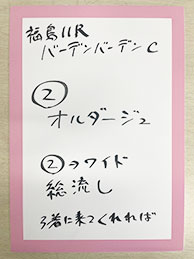 福島11R
バーデンバーデンC
②
オルダージュ
②→ワイド
総流し
3着に来てくれれば